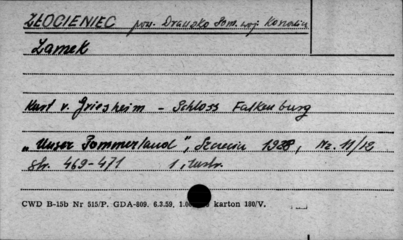 ZŁOCIENIEC pow. Drawsko Pom. woj. Koszalin
Zamek
Kurt v. Griesheim - Schloss Falkenburg
„Unser Pommerland", Szczecin 1928, Nr. 11/12
Str. 469-471 1, ilustr.
CWD B-15b Nr 515/P. GDA-809. 6.3.59. karton 180/V.